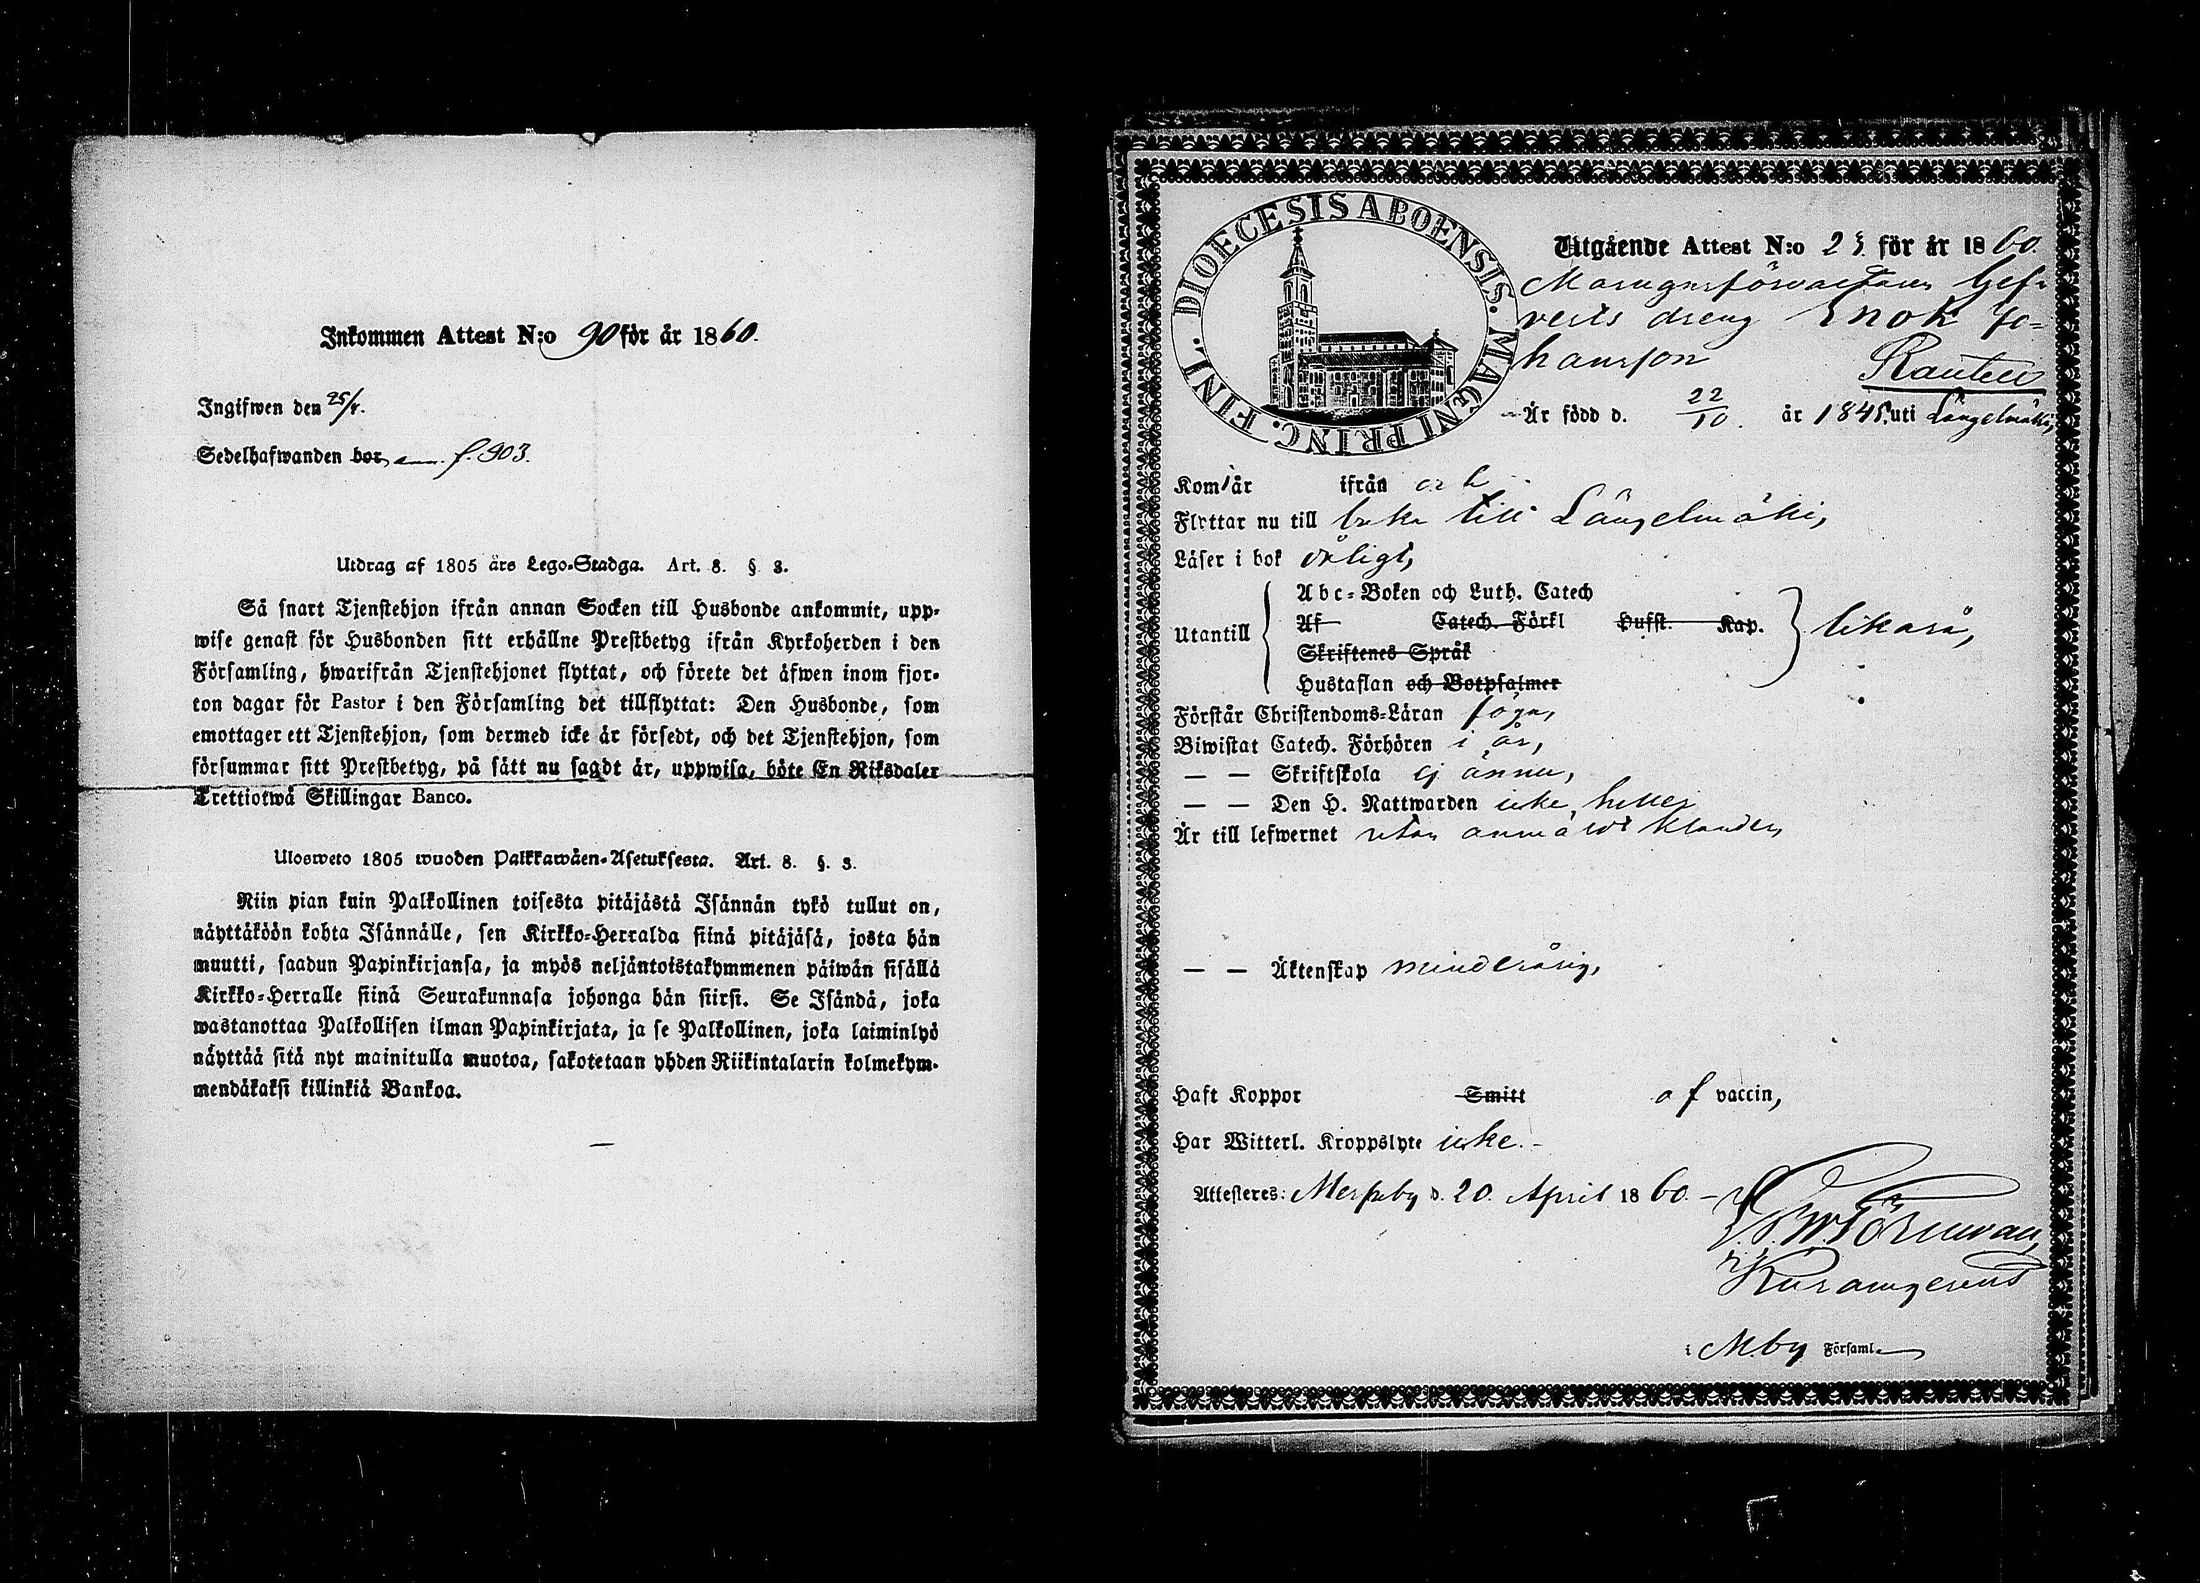 Inkommen Attest N:o 90 för år 1860.
Ingifwen den 25/4.
Sedelhafwanden bor ann. f. 903.
Utdrag af 1805 års Lego-Stadga. Art. 8. § 3.
Så snart Tjenstehjon ifrån annan Socken till Husbonde ankommit, upp-
wise genast för Husbonden sitt erhållne Prestbetyg ifrån Kyrkoherden i den
Församling, hwarifrån Tjenstehjonet flyttat, och förete det äfwen inom fjor-
ton dagar för Pastor i den Församling det tillflyttat: Den Husbonde, som
emottager ett Tjenstehjon, som dermed icke är försedt, och det Tjenstehjon, som
försummar sitt Prestbetyg, på sätt nu sagdt är, uppwisa, böte En Riksdaler
Trettiotwå Skillingar Banco.
Ulosweto 1805 wuoden Palkkawäen-Asetuksesta. Art. 8. §. 3.
Niin pian kuin Palkollinen toisesta pitäjästä Isännän tykö tullut on,
näyttäköön kohta Isännälle, sen Kirkko-Herralda siinä pitäjäsä, josta hän
muutti, saadun Papinkirjansa, ja myös neljäntoistakymmenen päiwän sisällä
Kirkko-Herralle siinä Seurakunnasa johonga hän siirsi. Se Isändä, joka
wastanottaa Palkollisen ilman Papinkirjata, ja se Palkollinen, joka laiminlyö
näyttää sitä nyt mainitulla muotoa, sakotetaan yhden Riikintalarin kolmekym-
mendäkaksi killinkiä Bankoa.
DIOECESIS ABOENSIS. MAGNI PRINC. FINL.
Utgående Attest N:o 25. för år 1860.
dreng Enok Jo-
hansson
Är född d. 22/10. år 1845. uti Längelmäki,
Kom år ifrån och
Flyttar nu till baka till Längelmäki,
Läser i bok dåligt,
Utantill
Abc-Boken och Luth. Catech
Af Catech. Förkl Hufst. Kap. likaså,
Skriftenes Språk
Hustaflan och Botpsalmer
Förstår Christendoms-Läran föga,
Biwistat Catech. Förhören i år,
— — Skriftskola ej ännu,
— — Den H. Nattwarden icke heller
Är till lefwernet utan anmäldt klander,
— — Äktenskap minderårig,
Haft Koppor Smitt af vaccin,
Har Witterl. Kroppslyte icke.
Attesteres: Messuby d. 20. April 1860.
i M.by Församl.